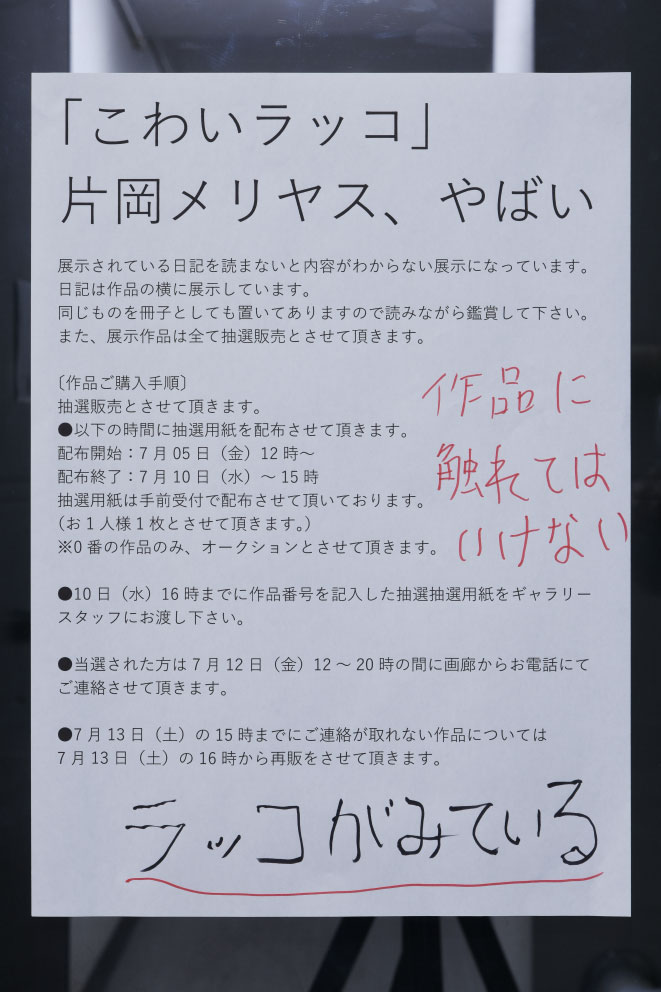 「こわいラッコ」
片岡メリヤス、やばい
展示されている日記を読まないと内容がわからない展示になっています。
日記は作品の横に展示しています。
同じものを冊子としても置いてありますので読みながら鑑賞して下さい。
また、展示作品は全て抽選販売とさせて頂きます。
〔作品ご購入手順〕
抽選販売とさせて頂きます。
●以下の時間に抽選用紙を配布させて頂きます。
配布開始：7月05日（金）12時〜
配布終了：7月10日（水）〜15時
抽選用紙は手前受付で配布させて頂いております。
(お1人様1枚とさせて頂きます。)
※0番の作品のみ、オークションとさせて頂きます。
作品に
触れては
いけない
●10日（水）16時までに作品番号を記入した抽選抽選用紙をギャラリー
スタッフにお渡し下さい。
●当選された方は7月12日（金）12〜20時の間に画廊からお電話にて
ご連絡させて頂きます。
●7月13日（土）の15時までにご連絡が取れない作品については
7月13日（土）の16時から再販をさせて頂きます。
ラッコがみている